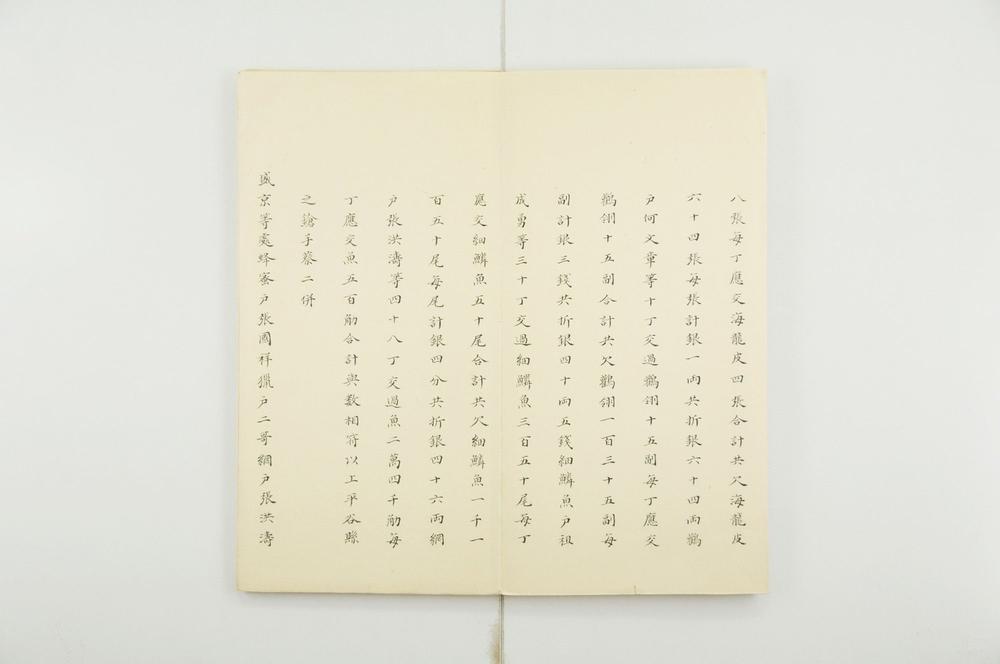 八張每丁應交海龍皮四張合計共欠海龍皮
六十四張每張計銀一兩共折銀六十四兩鸛
戶何文章等十丁交過鸛翎十五副每丁應交
鸛翎十五副合計共欠鸛翎一百三十五副每
副計銀三錢共折銀四十兩五錢細鱗魚戶祖
成勇等三十丁交過細鱗魚三百五十尾每丁
應交細鱗魚五十尾合計共欠細鱗魚一千一
百五十尾每尾計銀四分共折銀四十六兩網
戶張洪濤等四十八丁交過魚二萬四千觔每
丁應交魚五百觔合計與數相符以上平谷縣
之鎗手蔡二併
盛京等處蜂蜜戶張國祥獵戶二哥網戶張洪濤